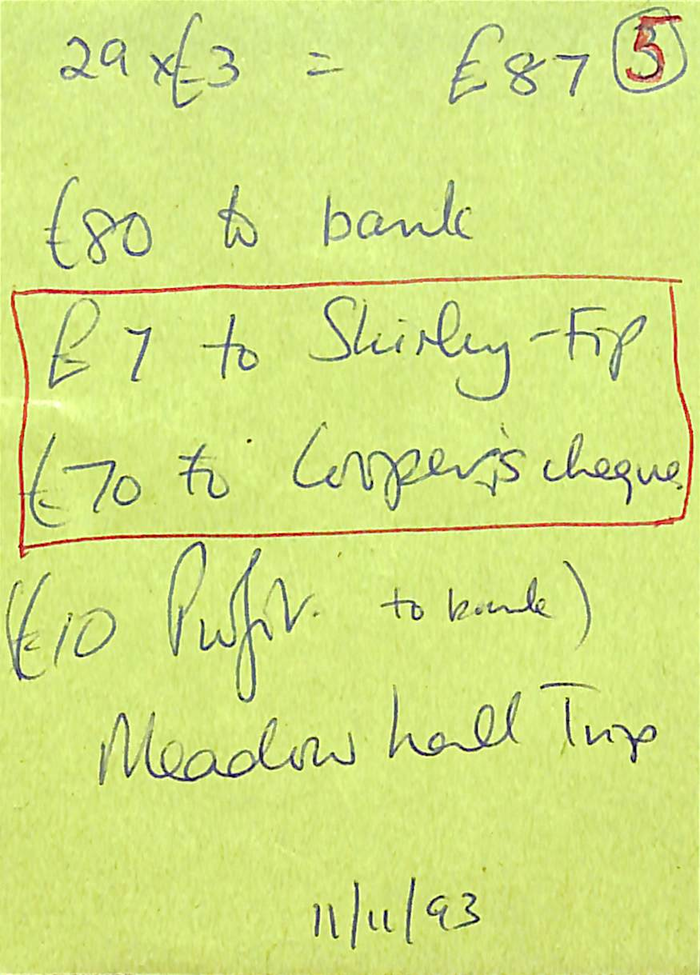 29 x £3 = £87 5
£80 to bank
£7 to Shirley - Tip
£70 to Cooper's cheque.
(£10 Profit. to bank)
Meadowhall Trip
11/11/93